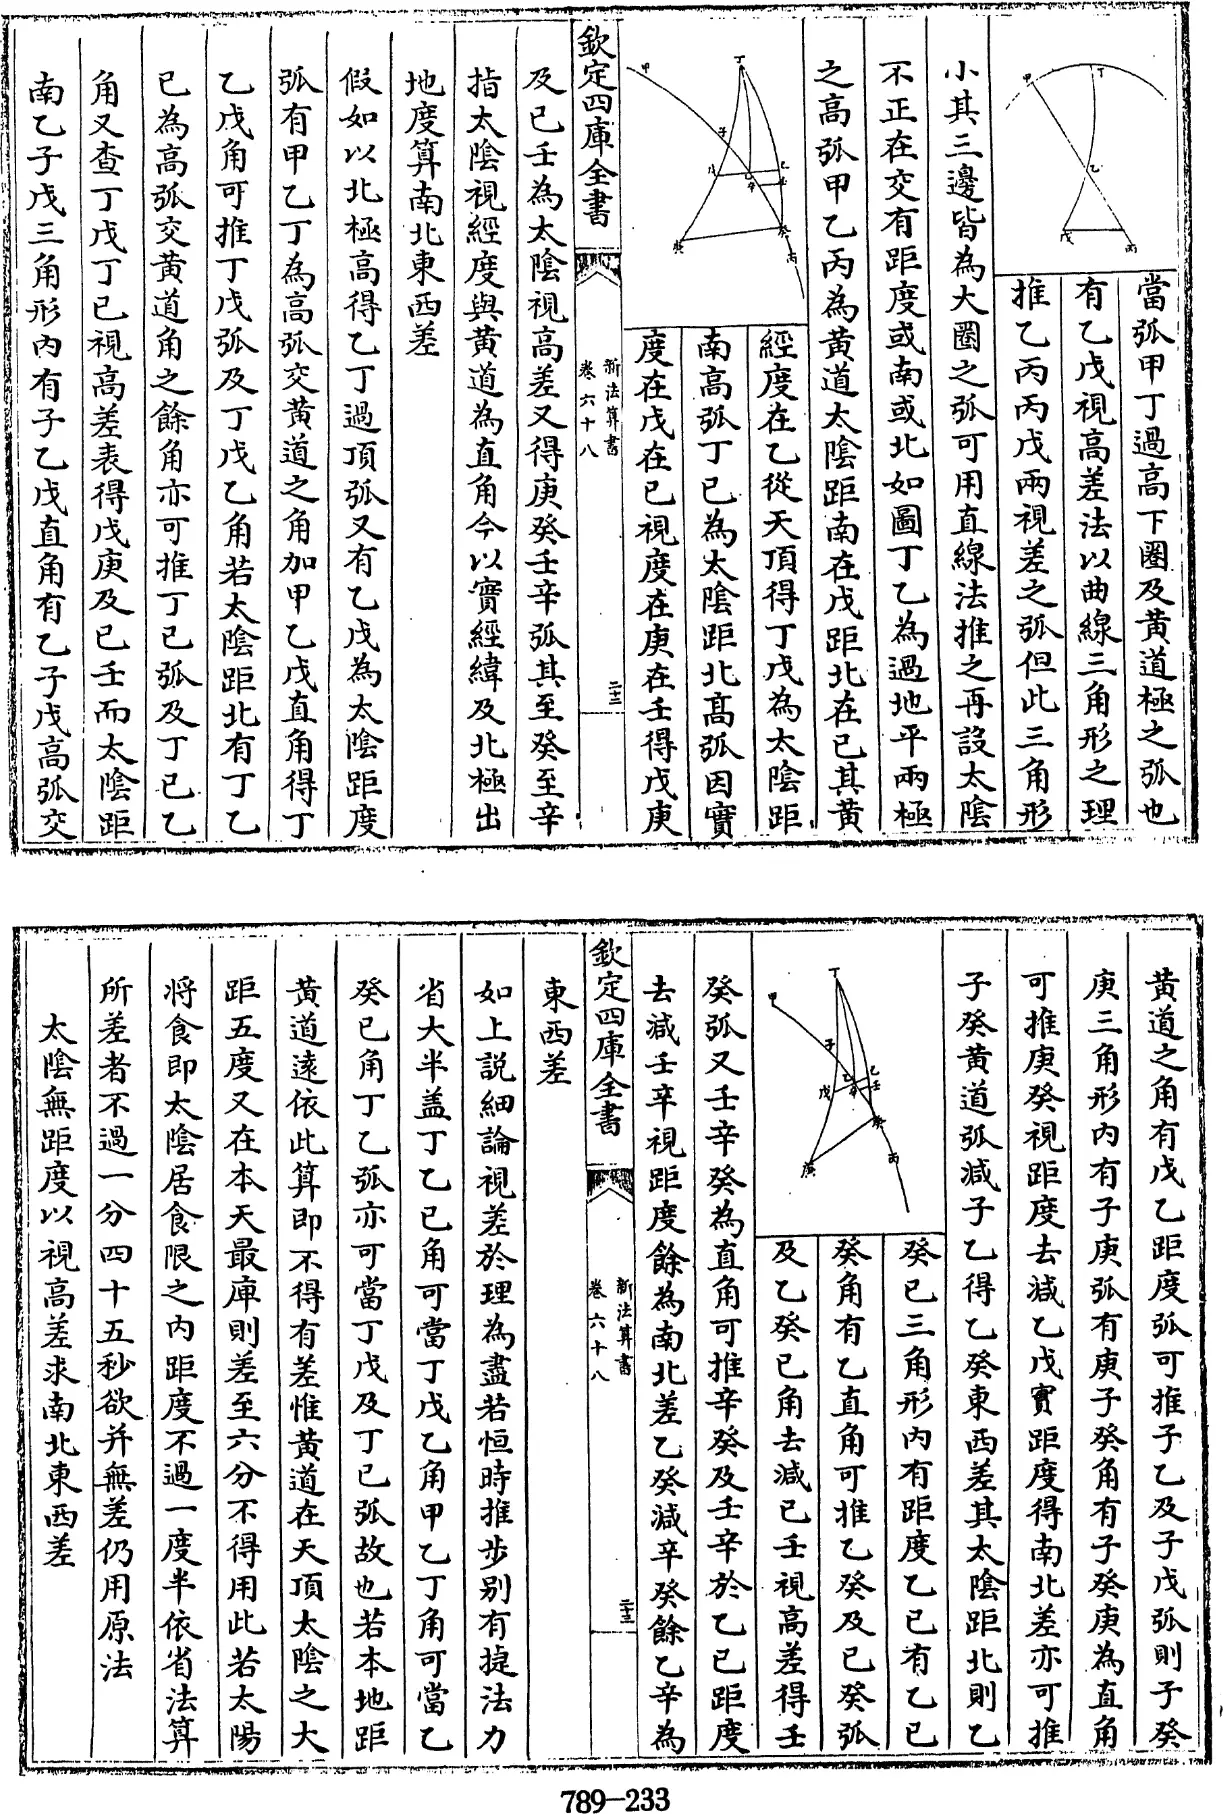 當弧甲丁過高下圈及黄道極之弧也
有乙戊視高差法以曲線三角形之理
推乙丙丙戊兩視差之弧但此三角形
小其三邊皆為大圈之弧可用直線法推之再設太陰
不正在交有距度或南或北如圖丁乙為過地平兩極
之高弧甲乙丙為黄道太陰距南在戊距北在已其黄
經度在乙從天頂得丁戊為太陰距
南高弧丁已為太陰距北高弧因實
度在戊在已視度在庚在壬得戊庚
欽定四庫全書
新法算書
卷六十八
二十二
及已壬為太陰視高差又得庚癸壬辛弧其至癸至辛
指太陰視經度與黄道為直角今以實經緯及北極出
地度算南北東西差
假如以北極高得乙丁過頂弧又有乙戊為太陰距度
弧有甲乙丁為高弧交黄道之角加甲乙戊直角得丁
乙戊角可推丁戊弧及丁戊乙角若太陰距北有丁乙
已為高弧交黄道角之餘角亦可推丁已弧及丁已乙
角又查丁戊丁已視高差表得戊庚及已壬而太陰距
南乙子戊三角形内有子乙戊直角有乙子戊高弧交
黄道之角有戊乙距度弧可推子乙及子戊弧則子癸
庚三角形内有子庚弧有庚子癸角有子癸庚為直角
可推庚癸視距度去減乙戊實距度得南北差亦可推
子癸黄道弧減子乙得乙癸東西差其太陰距北則乙
癸已三角形内有距度乙已有乙已
癸角有乙直角可推乙癸及已癸弧
及乙癸已角去減已壬視高差得壬
癸弧又壬辛癸為直角可推辛癸及壬辛於乙已距度
去減壬辛視距度餘為南北差乙癸減辛癸餘乙辛為
東西差
欽定四庫全書
新法算書
卷六十八
二十三
如上説細論視差於理為盡若恒時推步别有捷法力
省大半盖丁乙已角可當丁戊乙角甲乙丁角可當乙
癸已角丁乙弧亦可當丁戊及丁已弧故也若本地距
黄道遠依此算即不得有差惟黄道在天頂太陰之大
距五度又在本天最庳則差至六分不得用此若太陽
將食即太陰居食限之内距度不過一度半依省法算
所差者不過一分四十五秒欲并無差仍用原法
太陰無距度以視高差求南北東西差
789-233